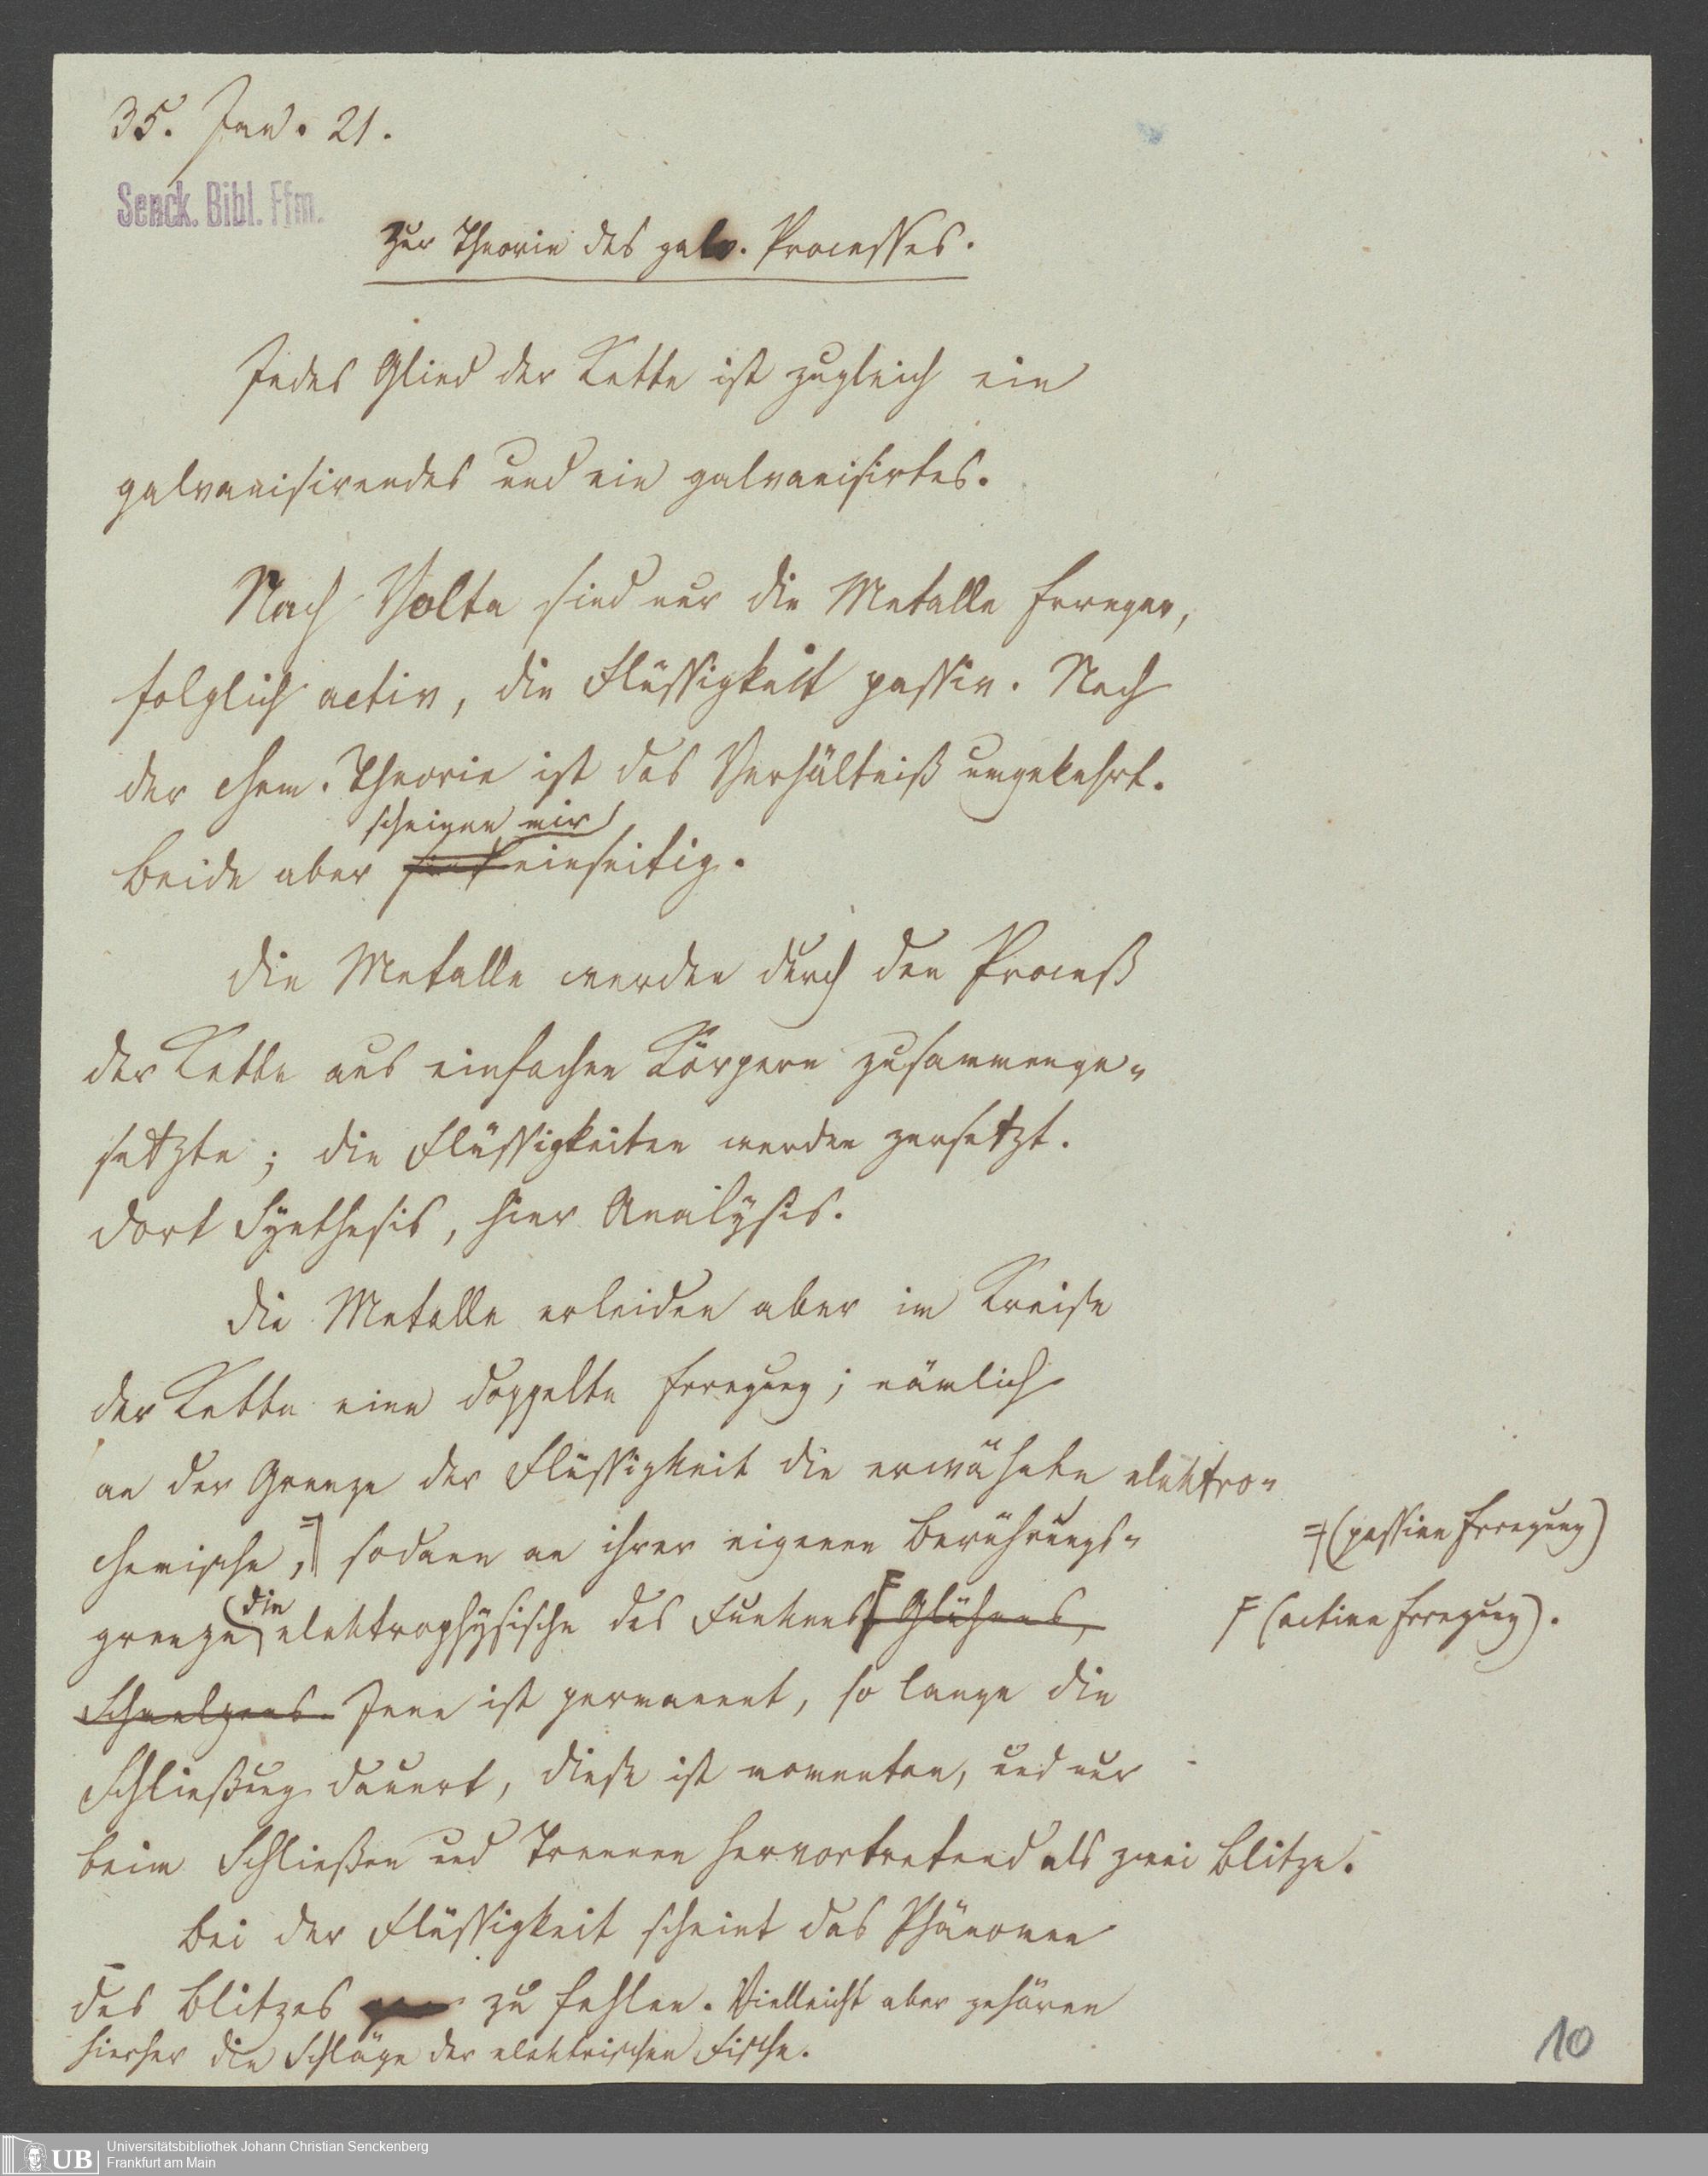 35. Jan. 21.
Senck. Bibl. Ffm.
Zur Theorie des galv. Processes.
Jedes Glied der Kette ist zugleich ein
galvanisirendes und ein galvanisirtes.
Nach Volta sind nur die Metalle Erreger,
folglich activ, die Flüssigkeit passiv. Nach
der chem. Theorie ist das Verhältniß umgekehrt.
scheinen mir
Beide aber sind einseitig.
Die Metalle werden durch den Proceß
der Kette aus einfachen Körpern zusammenge-
setzte; die Flüssigkeiten werden zersetzt.
Dort Synthesis, hier Analysis.
Die Metalle erleiden aber im Kreise
der Kette eine doppelte Erregung; nämlich
an der Grenze der Flüssigkeit die erwähnte elektro-
chemische, sodann an ihrer eigenen Berührungs-
(passive Erregung)
die
grenze elektrophysische des Funkens Glühens,
(active Erregung).
Schmelzens. Jene ist permanent, so lange die
Schließung dauert, diese ist momentan, und nur
beim Schließen und Trennen hervortretend als zwei Blitze.
Bei der Flüssigkeit scheint das Phänomen
des Blitzes zu fehlen. Vielleicht aber gehören
hierher die Schläge der elektrischen Fische.
10
UB
Universitätsbibliothek Johann Christian Senckenberg
Frankfurt am Main